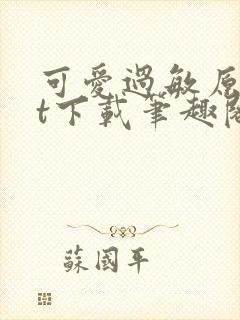 可愛過敏原
t下載筆趣閣
蘇國平